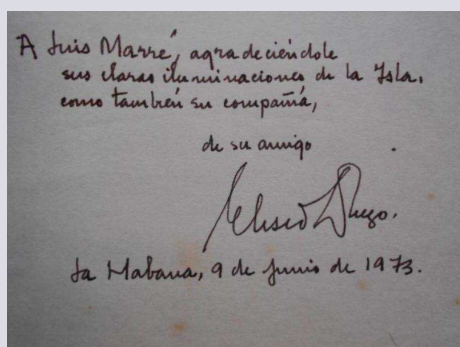 A Luis Marré, agradeciéndole
sus claras iluminaciones de la Isla,
como también su compañía,
de su amigo
Eliseo Diego.
La Habana, 9 de junio de 1973.